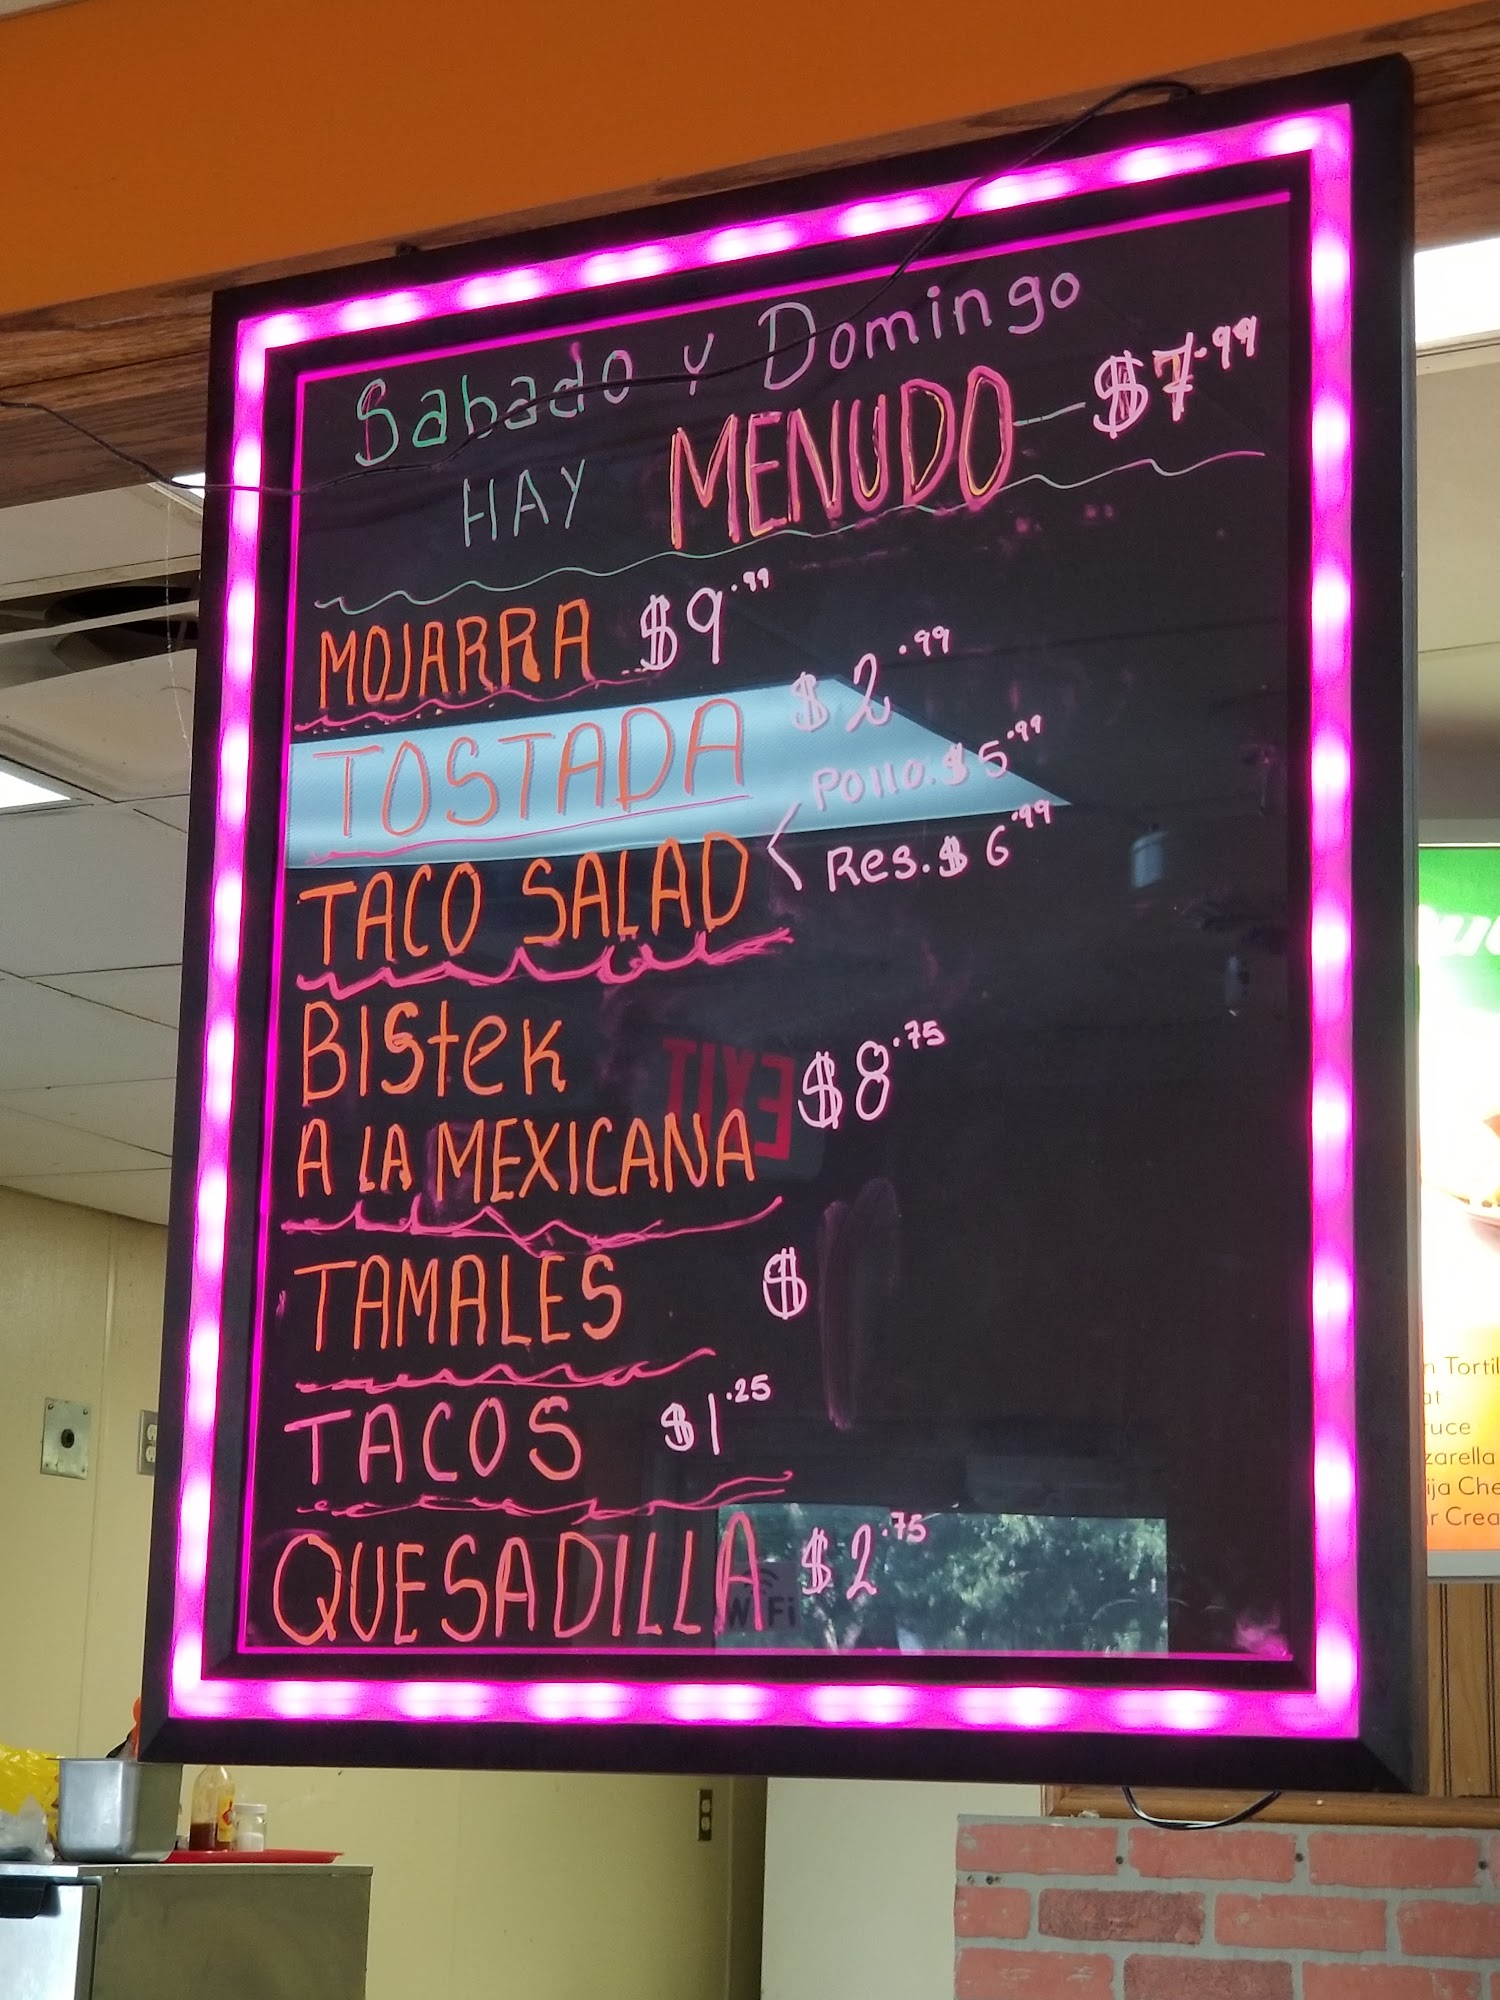 Sabado y Domingo
HAY MENUDO $7.99
MOJARRA $9.99
TOSTADA $2.99
Pollo. $5.99
TACO SALAD
Res. $6.99
BIStek
A LA MEXICANA $8.75
TAMALES $
TACOS $1.25
QUESADILLA $2.75
EXIT
WiFi
n Tortil
at
uce
zarella
ija Che
r Crea